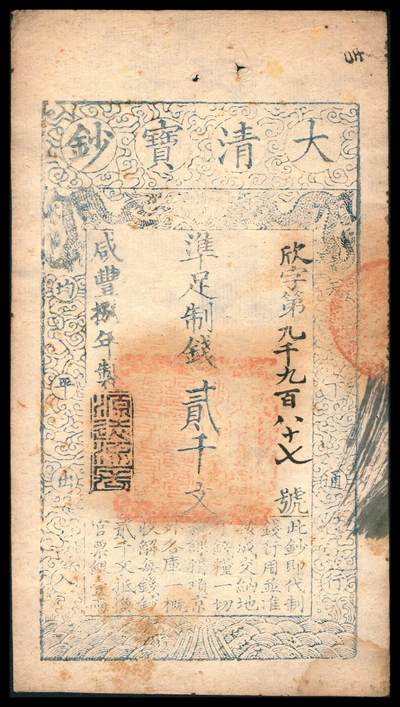 大清寶鈔
天下通行
欣字第九千九百八十七號
準足制錢貳千文
咸豐捌年製
均平出入
此鈔即代制
錢行用並准
按成交納地
丁錢糧一切
稅課捐項京
外各庫一概
收解每錢鈔
貳千文抵換
官票銀壹兩